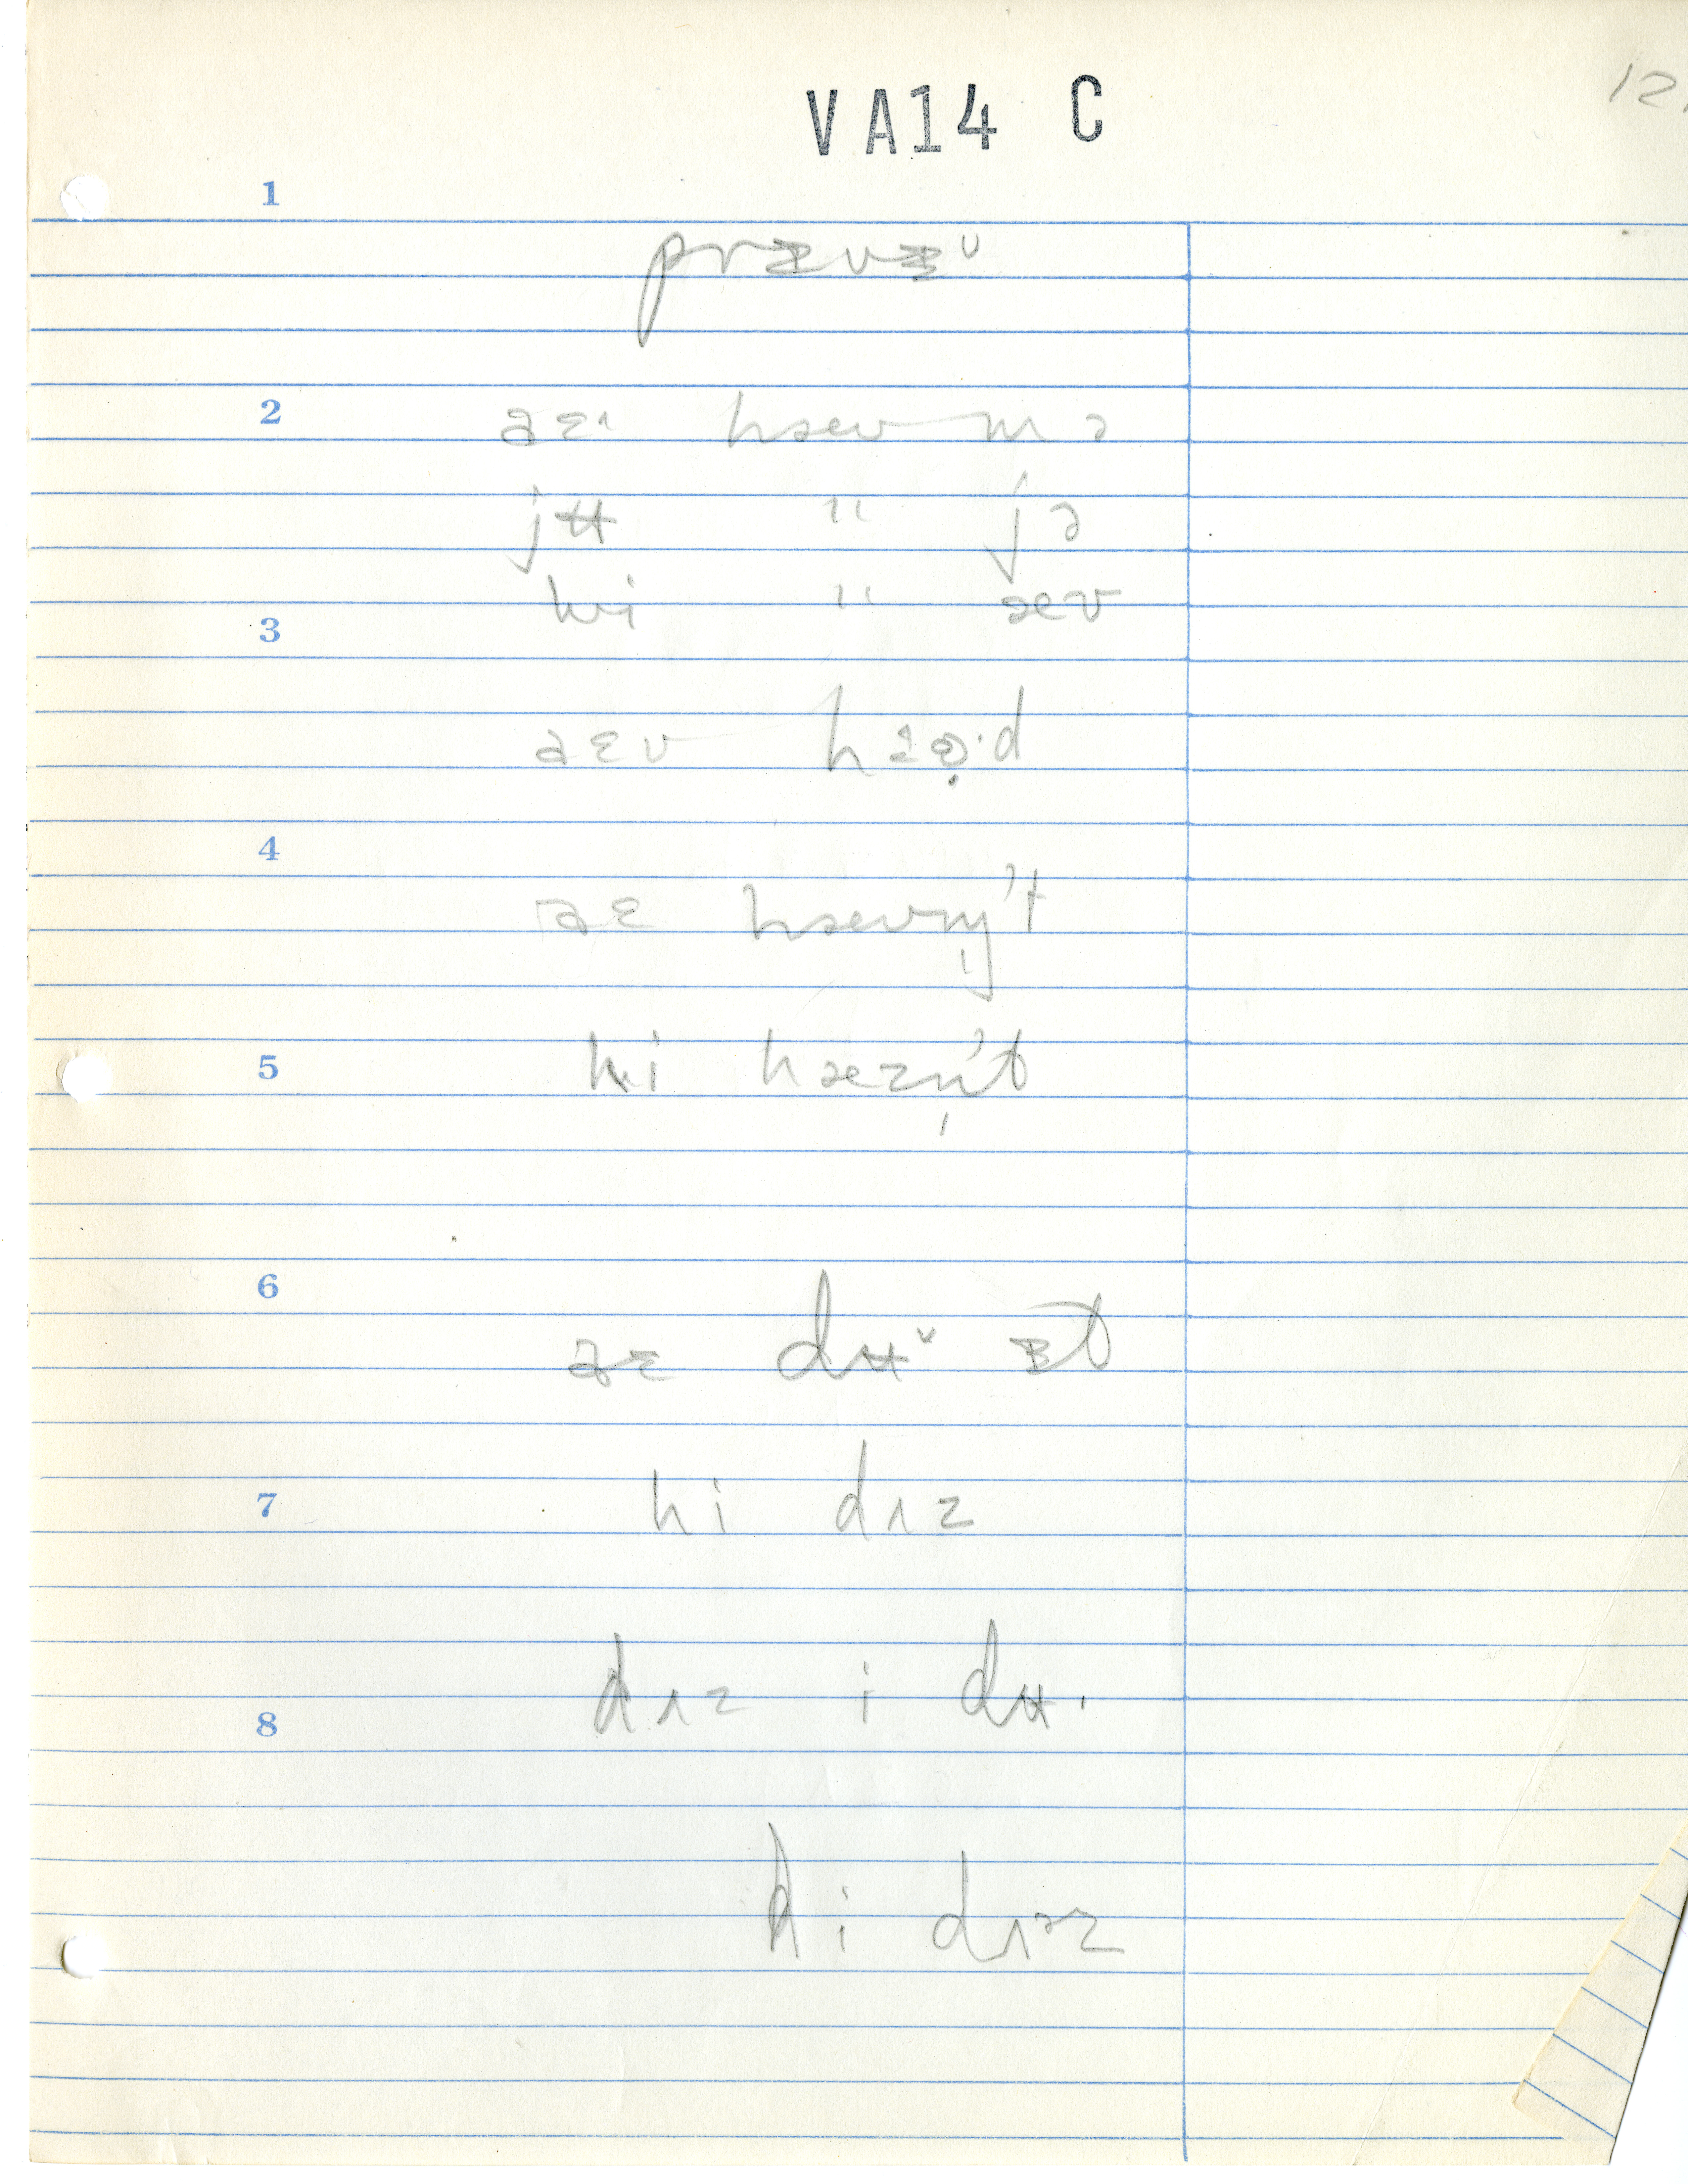 VA14 C
12
1
prɪvɪᵘ
2
aɛ˔ hæv m ə
jʉ " jə
hi " æv
3
aɛv hɜɚ·d
4
aɛ hævn̩'t
5
hi hæzn̩'t
6
aɛ dʉᵛ ɪt
7
hi dʌz
dʌz i dʉ·
8
hi dʌᵊz